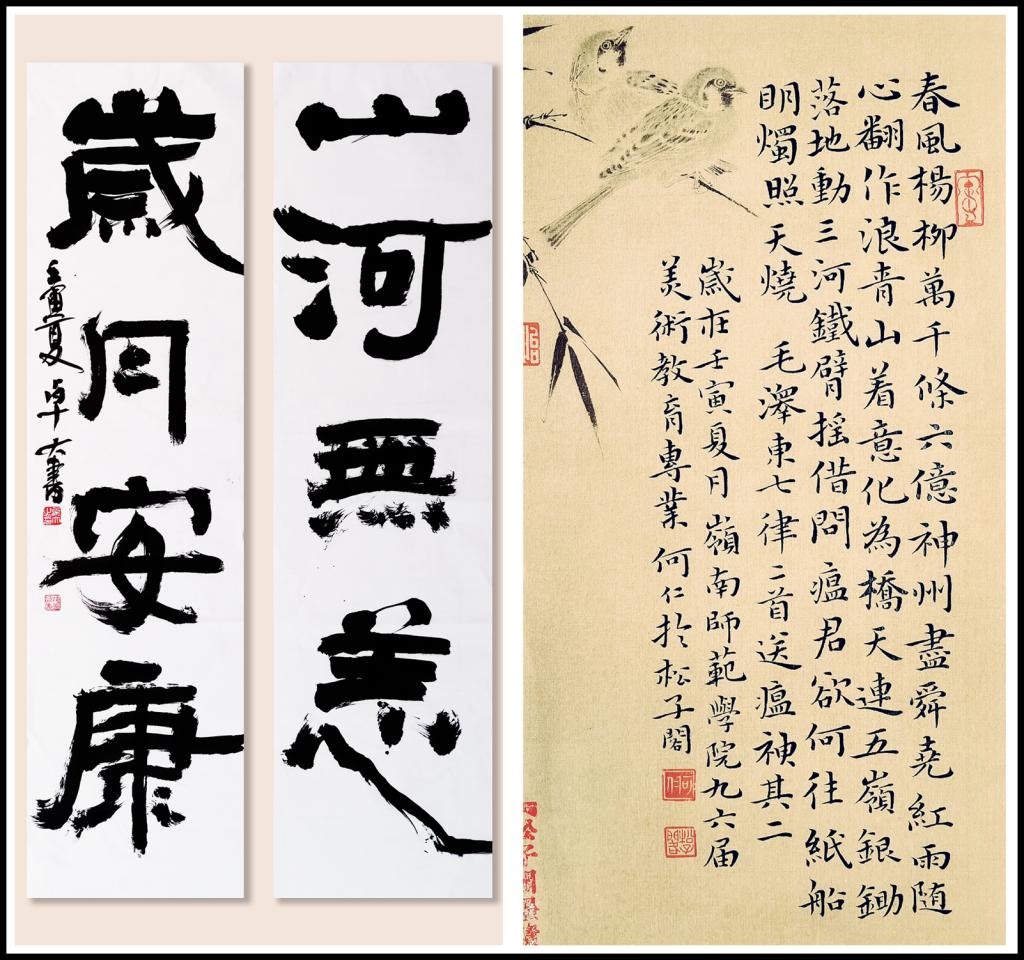 山河無恙
歲月安康
壬寅夏 卓大書
春風楊柳萬千條六億神州盡舜堯紅雨随
心翻作浪青山着意化為橋天連五嶺銀鋤
落地動三河鐵臂摇借問瘟君欲何往紙船
明燭照天燒 毛澤東七律二首送瘟神其二
歲在壬寅夏月嶺南師範學院九六届
美術教育專業何仁於松子閣